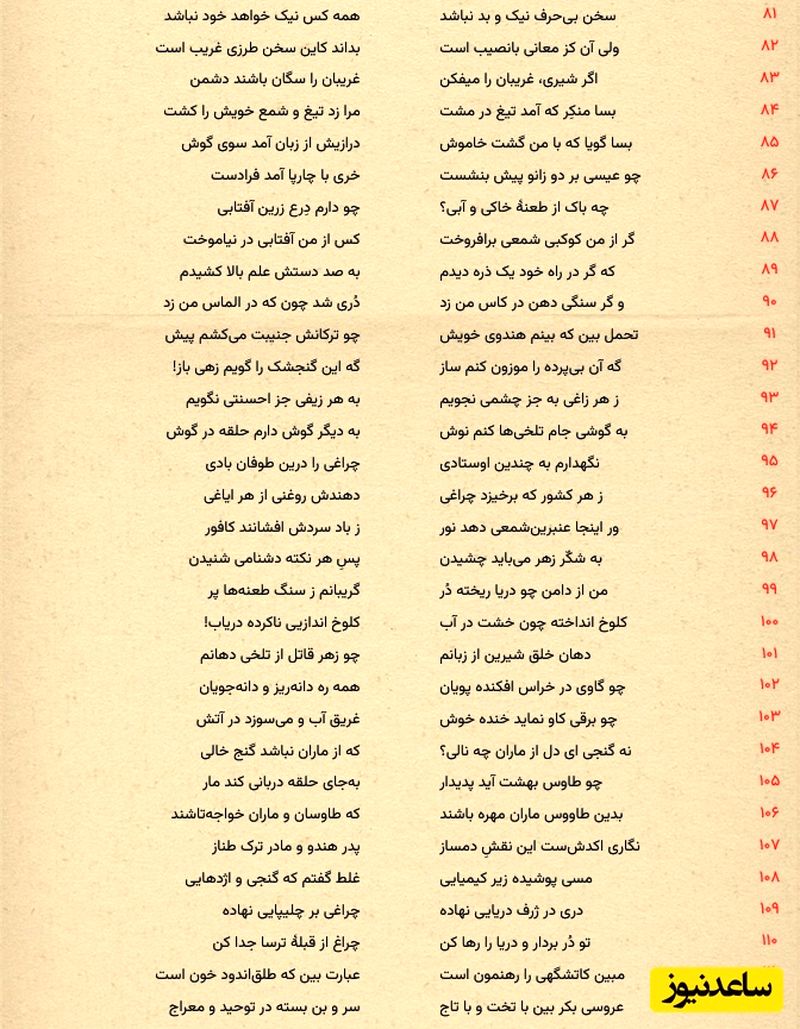 ۸۱ سخن بی‌حرف نیک و بد نباشد همه کس نیک خواهد خود نباشد
۸۲ ولی آن کز معانی بانصیب است بداند کاین سخن طرزی غریب است
۸۳ اگر شیری، غریبان را میفکن غریبان را سگان باشند دشمن
۸۴ بسا منکِر که آمد تیغ در مشت مرا زد تیغ و شمع خویش را کشت
۸۵ بسا گویا که با من گشت خاموش درازیش از زبان آمد سوی گوش
۸۶ چو عیسی بر دو زانو پیش بنشست خری با چارپا آمد فرادست
۸۷ چه باک از طعنهٔ خاکی و آبی؟ چو دارم دِرع زرین آفتابی
۸۸ گر از من کوکبی شمعی برافروخت کس از من آفتابی در نیاموخت
۸۹ که گر در راه خود یک ذره دیدم به صد دستش علم بالا کشیدم
۹۰ و گر سنگی دهن در کاس من زد دُری شد چون که در الماس من زد
۹۱ تحمل بین که بینم هندوی خویش چو ترکانش جنیبت می‌کشم پیش
۹۲ گه آن بی‌پرده را موزون کنم ساز گه این گنجشک را گویم زهی باز!
۹۳ ز هر زاغی به جز چشمی نجویم به هر زیفی جز احسنتی نگویم
۹۴ به گوشی جام تلخی‌ها کنم نوش به دیگر گوش دارم حلقه در گوش
۹۵ نگهدارم به چندین اوستادی چراغی را درین طوفان بادی
۹۶ ز هر کشور که برخیزد چراغی دهندش روغنی از هر ایاغی
۹۷ ور اینجا عنبرین‌شمعی دهد نور ز باد سردش افشانند کافور
۹۸ به شکّر زهر می‌باید چشیدن پسِ هر نکته دشنامی شنیدن
۹۹ من از دامن چو دریا ریخته دُر گریبانم ز سنگ طعنه‌ها پر
۱۰۰ کلوخ انداخته چون خشت در آب کلوخ اندازیی ناکرده دریاب!
۱۰۱ دهان خلق شیرین از زبانم چو زهر قاتل از تلخی دهانم
۱۰۲ چو گاوی در خراس افکنده پویان همه ره دانه‌ریز و دانه‌جویان
۱۰۳ چو برقی کاو نماید خنده خوش غریق آب و می‌سوزد در آتش
۱۰۴ نه گنجی ای دل از ماران چه نالی؟ که از ماران نباشد گنج خالی
۱۰۵ چو طاوس بهشت آید پدیدار به‌جای حلقه دربانی کند مار
۱۰۶ بدین طاووس ماران مهره باشند که طاوسان و ماران خواجه‌تاشند
۱۰۷ نگاری اکدش‌ست این نقشِ دمساز پدر هندو و مادر ترک طناز
۱۰۸ مسی پوشیده زیر کیمیایی غلط گفتم که گنجی و اژدهایی
۱۰۹ دری در ژرف دریایی نهاده چراغی بر چلیپایی نهاده
۱۱۰ تو دُر بردار و دریا را رها کن چراغ از قبلهٔ ترسا جدا کن
مبین کاتشگهی را رهنمون است عبارت بین که طلق‌اندود خون است
عروسی بکر بین با تخت و با تاج سر و بن بسته در توحید و معراج
ساعدنیوز